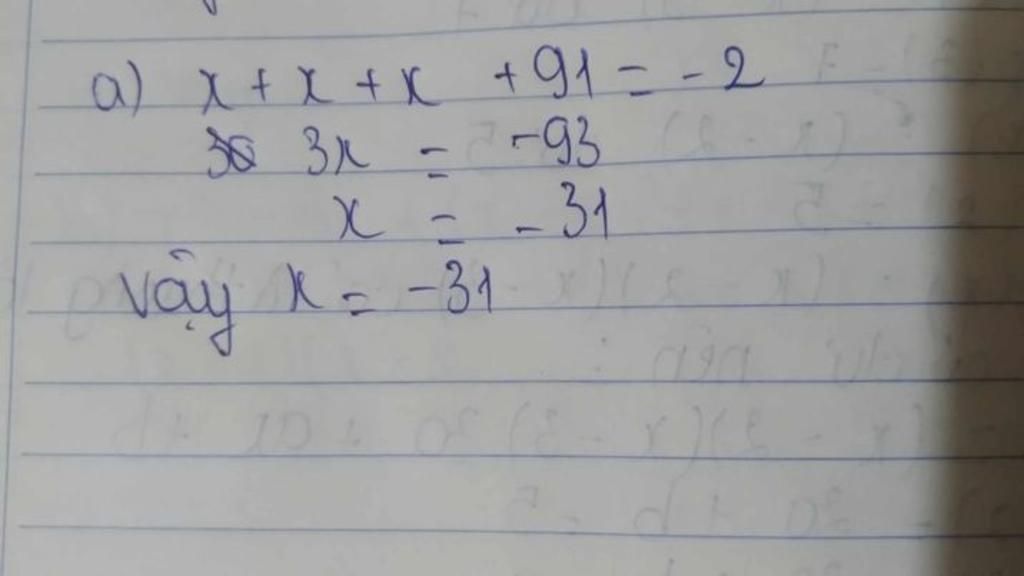 a) x + x + x + 91 = - 2
3x = -93
x = - 31
Vậy x = -31